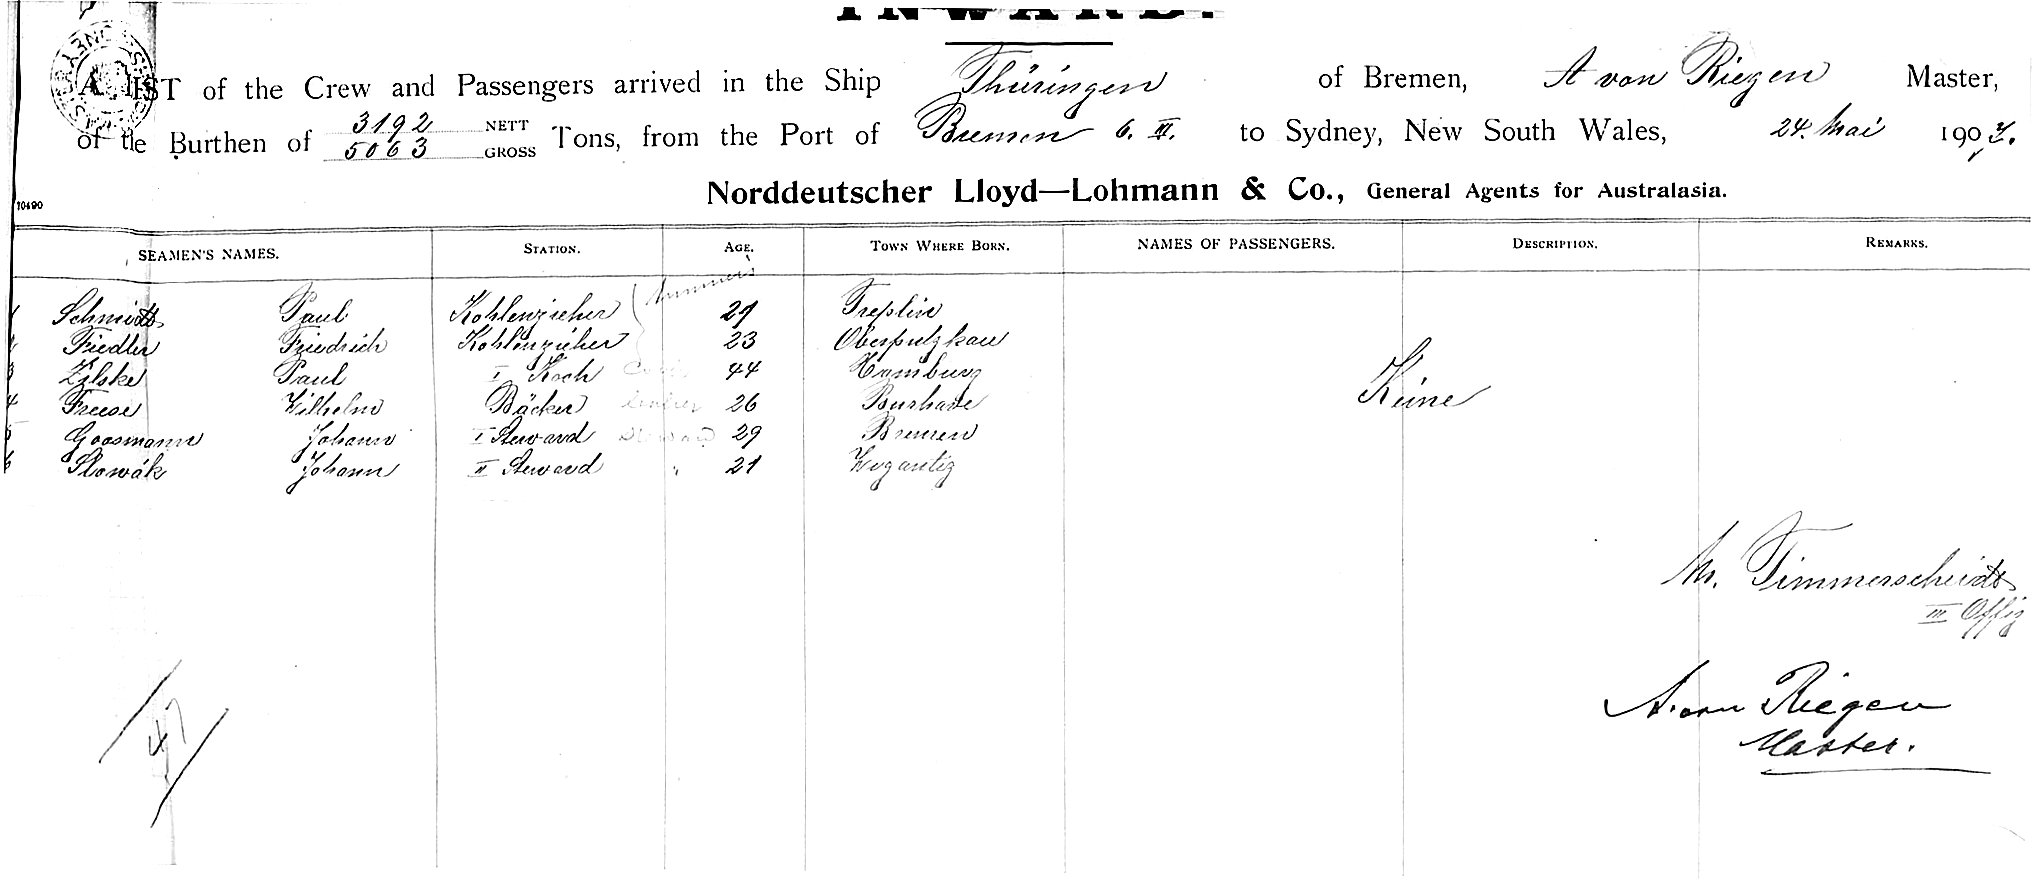 INWARD.
A LIST of the Crew and Passengers arrived in the Ship Thüringen of Bremen, A von Riegen Master,
of the Burthen of 3192 NETT 5063 GROSS Tons, from the Port of Bremen 6. III. to Sydney, New South Wales, 24. Mai 190
Norddeutscher Lloyd—Lohmann & Co., General Agents for Australasia.
10490
SEAMEN'S NAMES. STATION. AGE. TOWN WHERE BORN. NAMES OF PASSENGERS. DESCRIPTION. REMARKS.
1 Schmidt Paul Kohlenzieher Trimmers 21 Treplin
2 Fiedler Friedrich Kohlenzieher 23 Oberputzkau
3 Zilske Paul I Koch Cook 44 Hamburg
4 Freese Wilhelm Bäcker 26 Burhave
5 Goosmann Johann I Steward Steward 29 Bremen
6 Slowák Johann II Steward " 21
Keine
M. Timmerscheidt
III Offiz
A. von Riegen
Master.
47